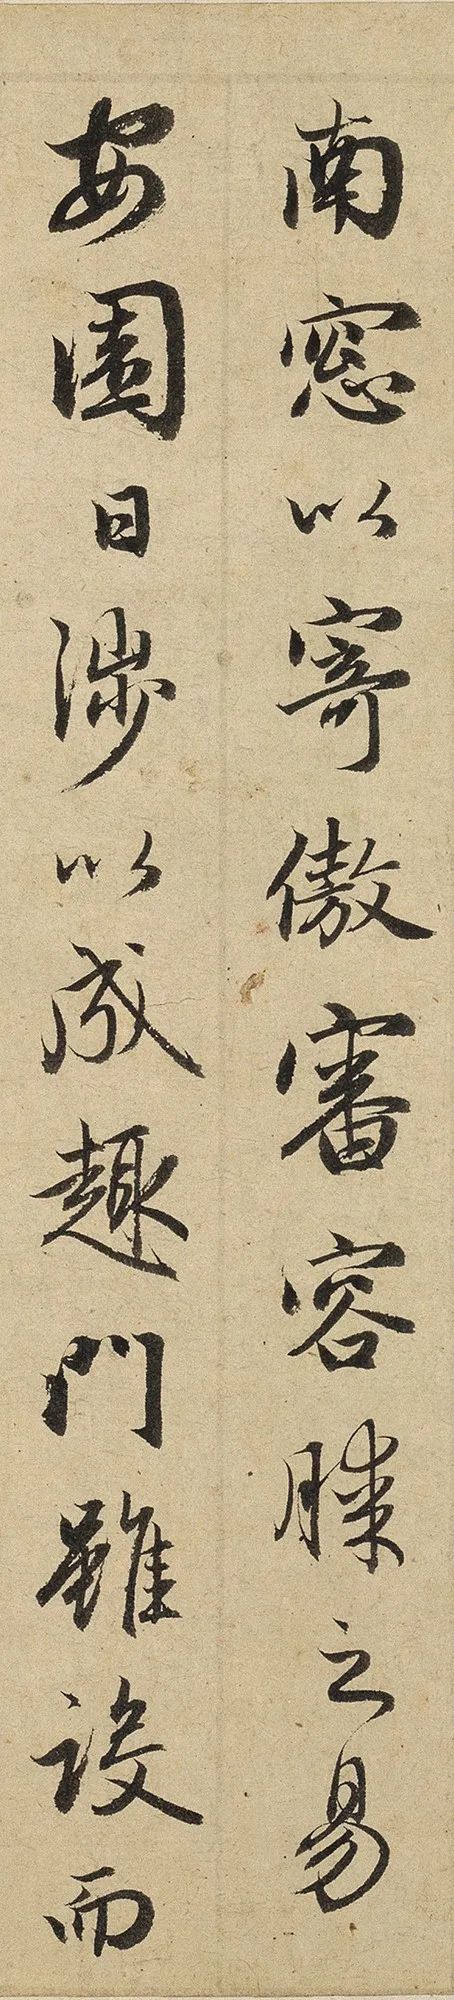 南窓以寄傲審容膝之易
安園日涉以成趣門雖設而